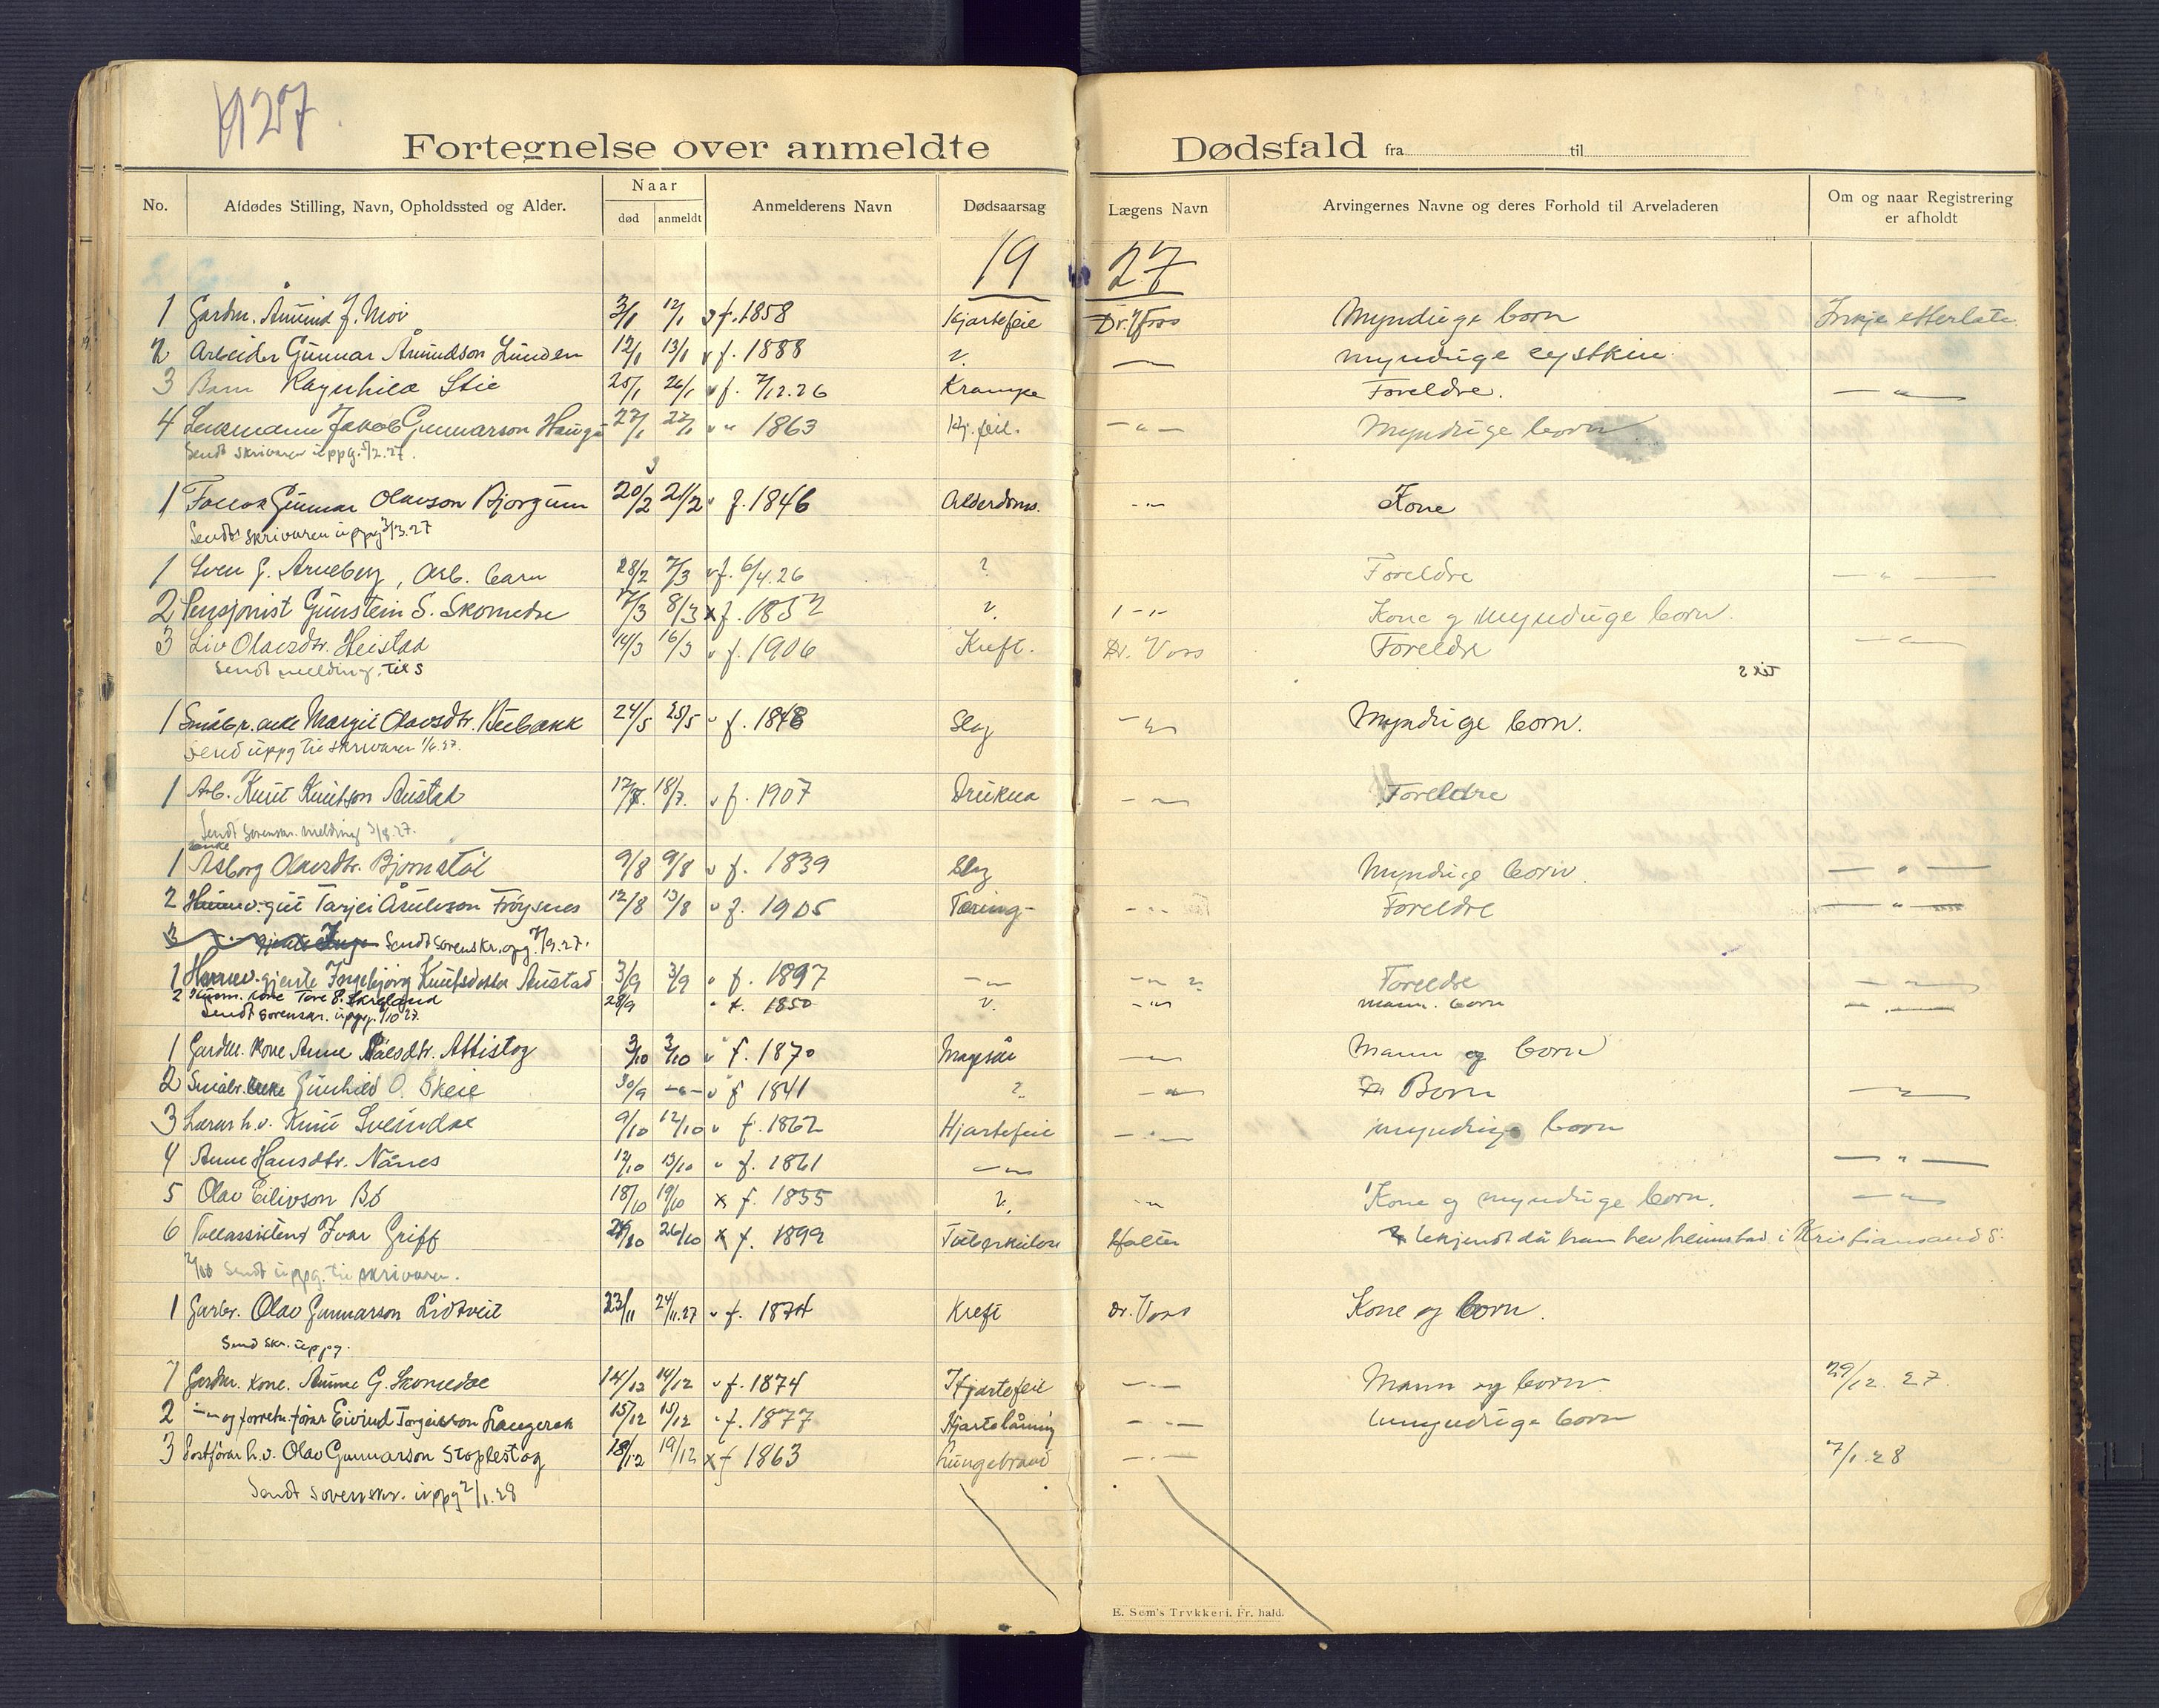 1927.
Fortegnelse over anmeldte Dødsfald fra til
No. Afdødes Stilling, Navn, Opholdssted og Alder. Naar død anmeldt Anmelderens Navn Dødsaarsag Lægens Navn Arvingernes Navne og deres Forhold til Arveladeren Om og naar Registrering er afholdt
19 27
1 Gardm. Åmund J. Moi 3/1 12/1 f. 1858 Hjartefeil Dr. Voss Myndige born Inkje etterlate
2 Arbeider Gunnar Åmundson Lunden 12/1 13/1 f. 1888 ? — myndige syskin
3 Barn Ragnhild Stie 25/1 26/1 f. 7/12.26 Krampe Foreldre. — " —
4 Lensmann Jakob Gunnarson Haugen 27/1 27/1 " 1863 Hj. feil. — " — Myndige born
Sendt skrivaren uppg. 2/2.27.
1 Gunnar Olavson Bjorgum 20/2 21/2 f. 1846 Alderdoms. - " - Kone
Sendt skrivaren uppg 3/3.27
1 Sven G. Arneberg, Arb. barn 28/2 7/3 f. 6/4.26 ? Foreldre — " —
2 Pensjonist Gunstein S. Skomedal 7/3 8/3 x f. 1852 ? " - " - Kone og myndige born.
3 Liv Olavsdtr. Heistad 14/3 16/3 f. 1906 Kreft. Dr. Voss Foreldre — " —
Sendt melding. til S
1 Småbr. enke Margit Olavsdtr. Rubakk 24/5 25/5 f. 1848 Slag - " - Myndige born.
Send uppg til skrivaren 1/6.27.
1 Arb. Knut Knutson Austad 17/7. 18/7. f. 1907 Drukna - " - Foreldre
Sendt sorenskr. melding 3/8.27.
enke
1 Asborg Olavsdtr. Bjornstöl 9/8 9/8 f. 1839 Slag Myndige born. — " —
2 Heimev. gut Tarjei Åvulvson Fröysnes 12/8 13/8 f. 1905 Tæring - " - Foreldre — " —
3 Sendt sorenskr. opg. 7/9.27.
1 Heimev. gjente Ingebjorg Knutsdotter Austad 3/9 3/9 f. 1897 — " — - " - ? Foreldre — " —
2 kone Tore P. Skreland 28/9 f. 1850 ? - " - mann. born — " —
Sendt sorenskr. uppg. /10 27.
1 Gardm. kone Anne Pålsdtr. Attistog 3/10 3/10 f. 1870 Magesår — " — Mann og born
2 Småbr. enke Gunhild O. Skeie 30/9 — " — f 1841 ? — " — Born — " —
3 Lærar h.v. Knut Sveindal 9/10 12/10 f. 1862 Hjartefeil — " — myndige born
4 Anne Hansdtr. Nånes 12/10 13/10 f. 1861 — " — — " —
5 Olav Eilivson Bö 18/10 19/10 x f. 1855 ? - " - Kone og myndige born. — " —
6 Tollassistent Ivar Griff 26/10 x f. 1899 Tuberkulose Holter ukjendt då han hev heimstad i Kristiansand S.
Sendt uppg. til skrivaren.
1 Garbr. Olav Gunnarson Lidtveit 23/11 24/11.27 f. 1874 Kreft Dr. Voss Kone og born.
Send skr. uppg.
1 Gardm. kone. Anne G. Skomedal 12/12 14/12 f. 1874 Hjartefeil — " — Mann og born 29/12. 27.
2 — " — og forretn. förar Eivind Torgeirson Langerak 15/12 15/12 f. 1877 Hjartelåming — " — Umyndige born
3 Postförar h.v. Olav Gunnarson Stoplestog 18/12 19/12 x f 1863 Lungebrand — " — 7/1.28
Sendt sorenskr. uppg 2/1.28
E. Sem's Trykkeri, Fr. hald.